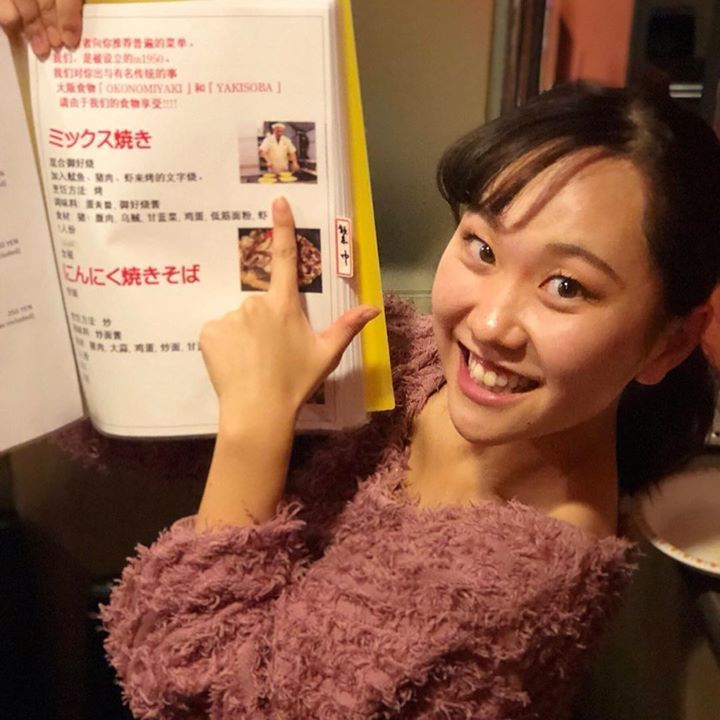 者向你推荐普遍的菜单。
我们,是被设立的in1950。
我们对你出与有名传统的事
大阪食物「OKONOMIYAKI」和「YAKISOBA」
请由于我们的食物享受!!!!
ミックス焼き
混合御好烧
加入鱿鱼、猪肉、虾来烤的文字烧。
烹饪方法: 烤
调味料: 蛋黄酱, 御好烧酱
食材: 猪: 腹肉, 乌贼, 甘蓝菜, 鸡蛋, 低筋面粉, 虾
1人份
にんにく焼きそば
烹饪方法: 炒
调味料: 炒面酱
猪肉, 大蒜, 鸡蛋, 炒面, 甘
YEN
250 YEN